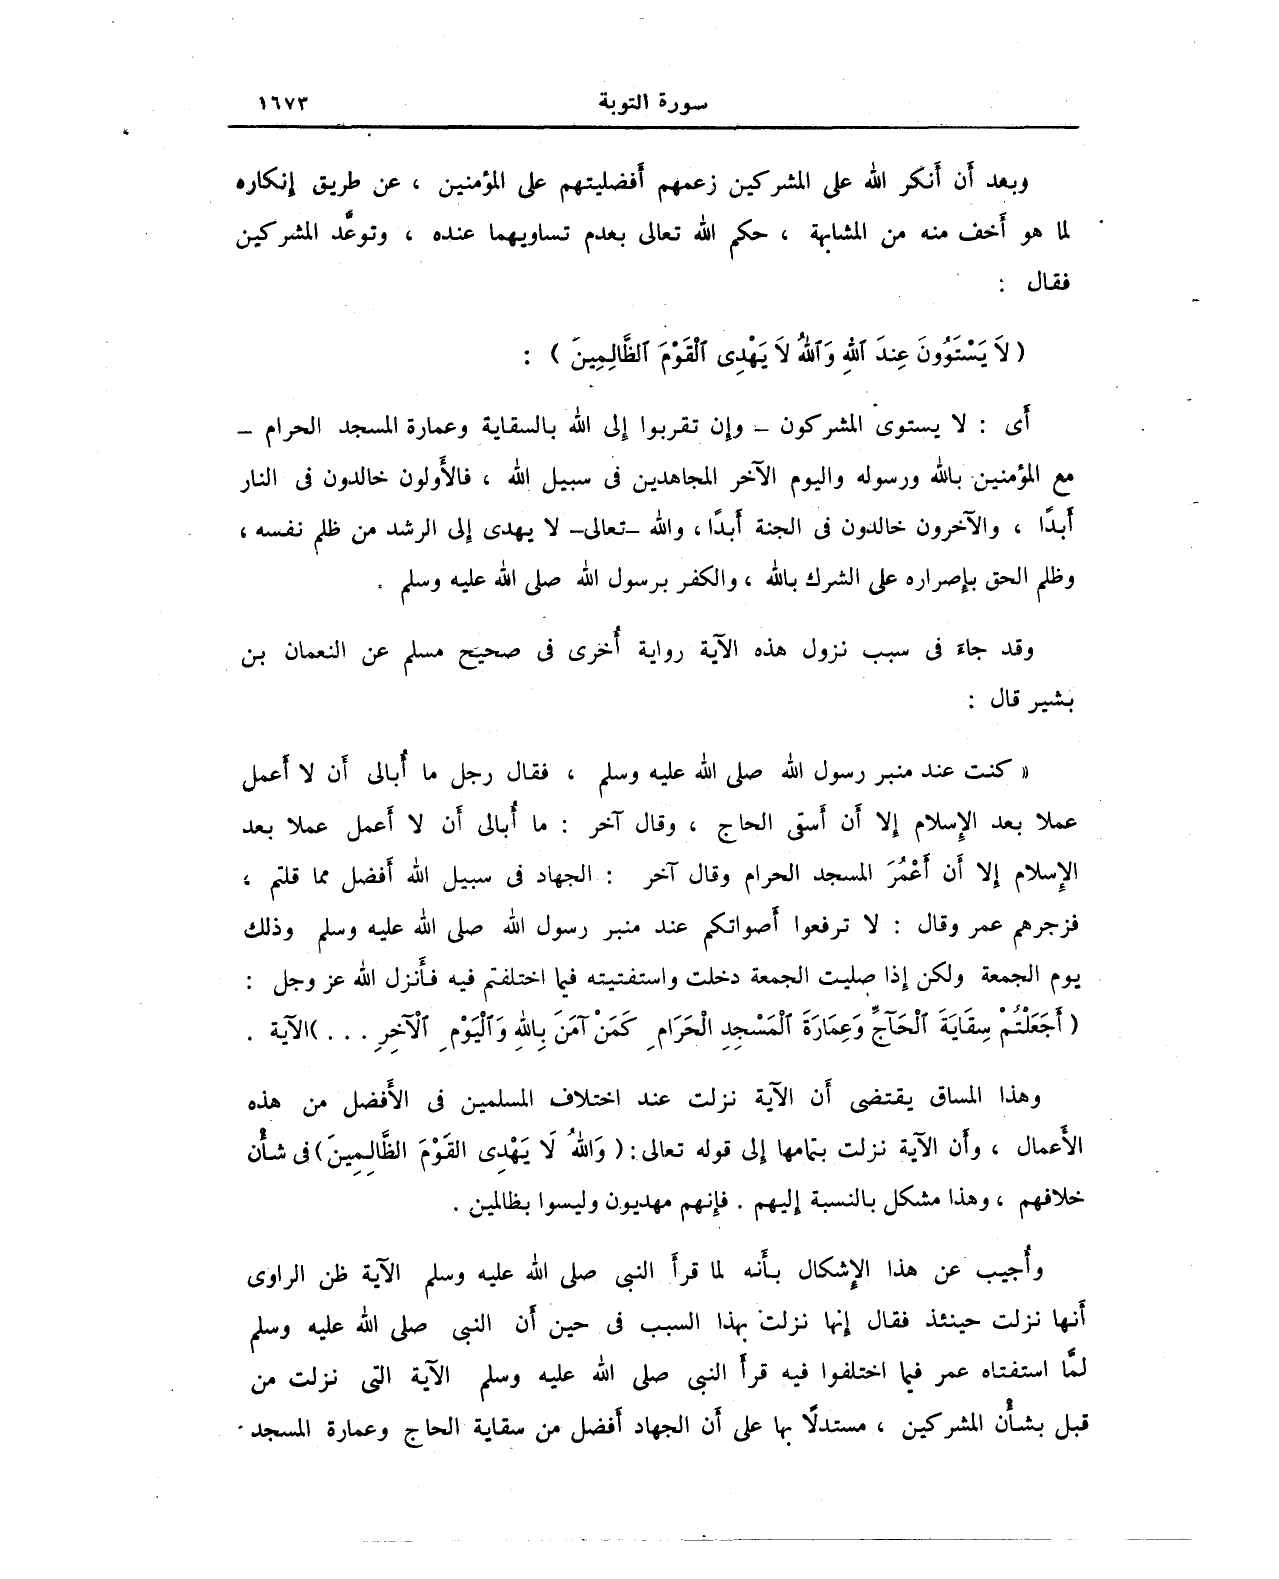 سورة التوبة ١٦٧٣
وبعد أن أنكر الله على المشركين زعمهم أفضليتهم على المؤمنين ، عن طريق إنكاره
لما هو أخف منه من المشابهة ، حكم الله تعالى بعدم تساويهما عنده ، وتوعَّد المشركين
فقال :
( لاَ يَسْتَوُونَ عِندَ ٱللهِ وَٱللهُ لاَ يَهْدِى ٱلْقَوْمَ ٱلظَّالِمِينَ ) :
أى : لا يستوى المشركون – وإن تقربوا إلى الله بالسقاية وعمارة المسجد الحرام –
مع المؤمنين بالله ورسوله واليوم الآخر المجاهدين فى سبيل الله ، فالأَولون خالدون فى النار
أبدًا ، والآخرون خالدون فى الجنة أبدًا ، والله –تعالى– لا يهدى إلى الرشد من ظلم نفسه ،
وظلم الحق بإصراره على الشرك بالله ، والكفر برسول الله صلى الله عليه وسلم .
وقد جاءَ فى سبب نزول هذه الآية رواية أُخرى فى صحيح مسلم عن النعمان بن
بشير قال :
« كنت عند منبر رسول الله صلى الله عليه وسلم ، فقال رجل ما أُبالى أن لا أَعمل
عملا بعد الإسلام إلا أن أَسقى الحاج ، وقال آخر : ما أُبالى أن لا أعمل عملا بعد
الإسلام إلا أن أَعْمُرَ المسجد الحرام وقال آخر : الجهاد فى سبيل الله أفضل مما قلتم ،
فزجرهم عمر وقال : لا ترفعوا أصواتكم عند منبر رسول الله صلى الله عليه وسلم وذلك
يوم الجمعة ولكن إذا صليت الجمعة دخلت واستفتيته فيما اختلفتم فيه فأَنزل الله عز وجل :
( أَجَعَلْتُمْ سِقَايَةَ ٱلْحَآجِّ وَعِمَارَةَ ٱلْمَسْجِدِ الْحَرَامِ كَمَنْ آمَنَ بِاللهِ وَٱلْيَوْمِ ٱلْآخِرِ . . . )الآية .
وهذا المساق يقتضى أن الآية نزلت عند اختلاف المسلمين فى الأَفضل من هذه
الأَعمال ، وأن الآية نزلت بتمامها إلى قوله تعالى : ( وَاللهُ لَا يَهْدِى القَوْمَ الظَّالِمِينَ) فى شأْن
خلافهم ، وهذا مشكل بالنسبة إليهم . فإنهم مهديون وليسوا بظالمين .
وأُجيب عن هذا الإشكال بأَنه لما قرأ النبى صلى الله عليه وسلم الآية ظن الراوى
أنها نزلت حينئذ فقال إنها نزلت بهذا السبب فى حين أن النبى صلى الله عليه وسلم
لمَّا استفتاه عمر فيما اختلفوا فيه قرأَ النبى صلى الله عليه وسلم الآية التى نزلت من
قبل بشأْن المشركين ، مستدلًّا بها على أن الجهاد أفضل من سقاية الحاج وعمارة المسجد